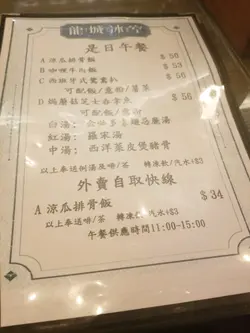 龍城冰室
是日午餐
A 涼瓜排骨飯 $56
B 咖喱牛𦟌飯 $53
C 西班牙式鴛鴦扒 $56
可配飯/意粉/薯菜
D 焗蘑菇芝士吞拿魚 $56
可配飯/意粉
紅湯：羅宋湯
中湯：西洋菜皮煲豬骨
以上奉送例湯及啡/茶 轉凍飲/汽水+$3
外賣自取快線
A 涼瓜排骨飯 $34
以上奉送啡/茶 轉凍飲/汽水+$3
午餐供應時間11:00-15:00